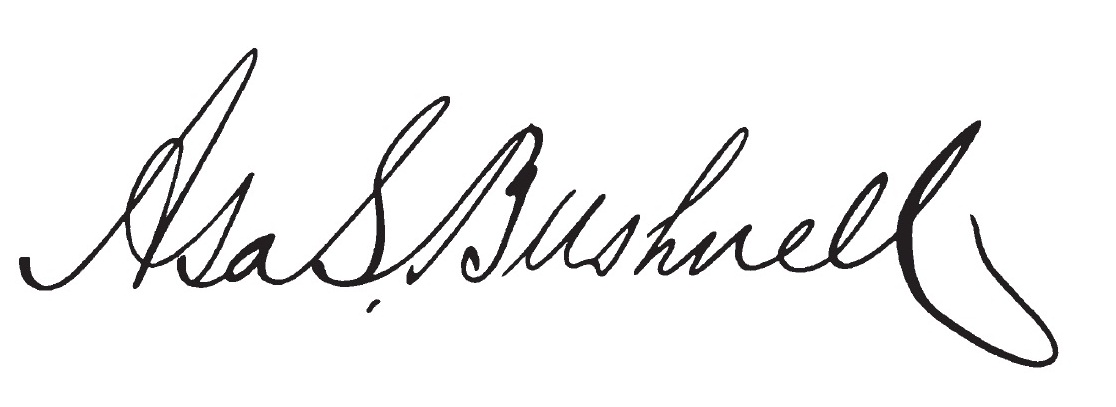 Asa S. Bushnell